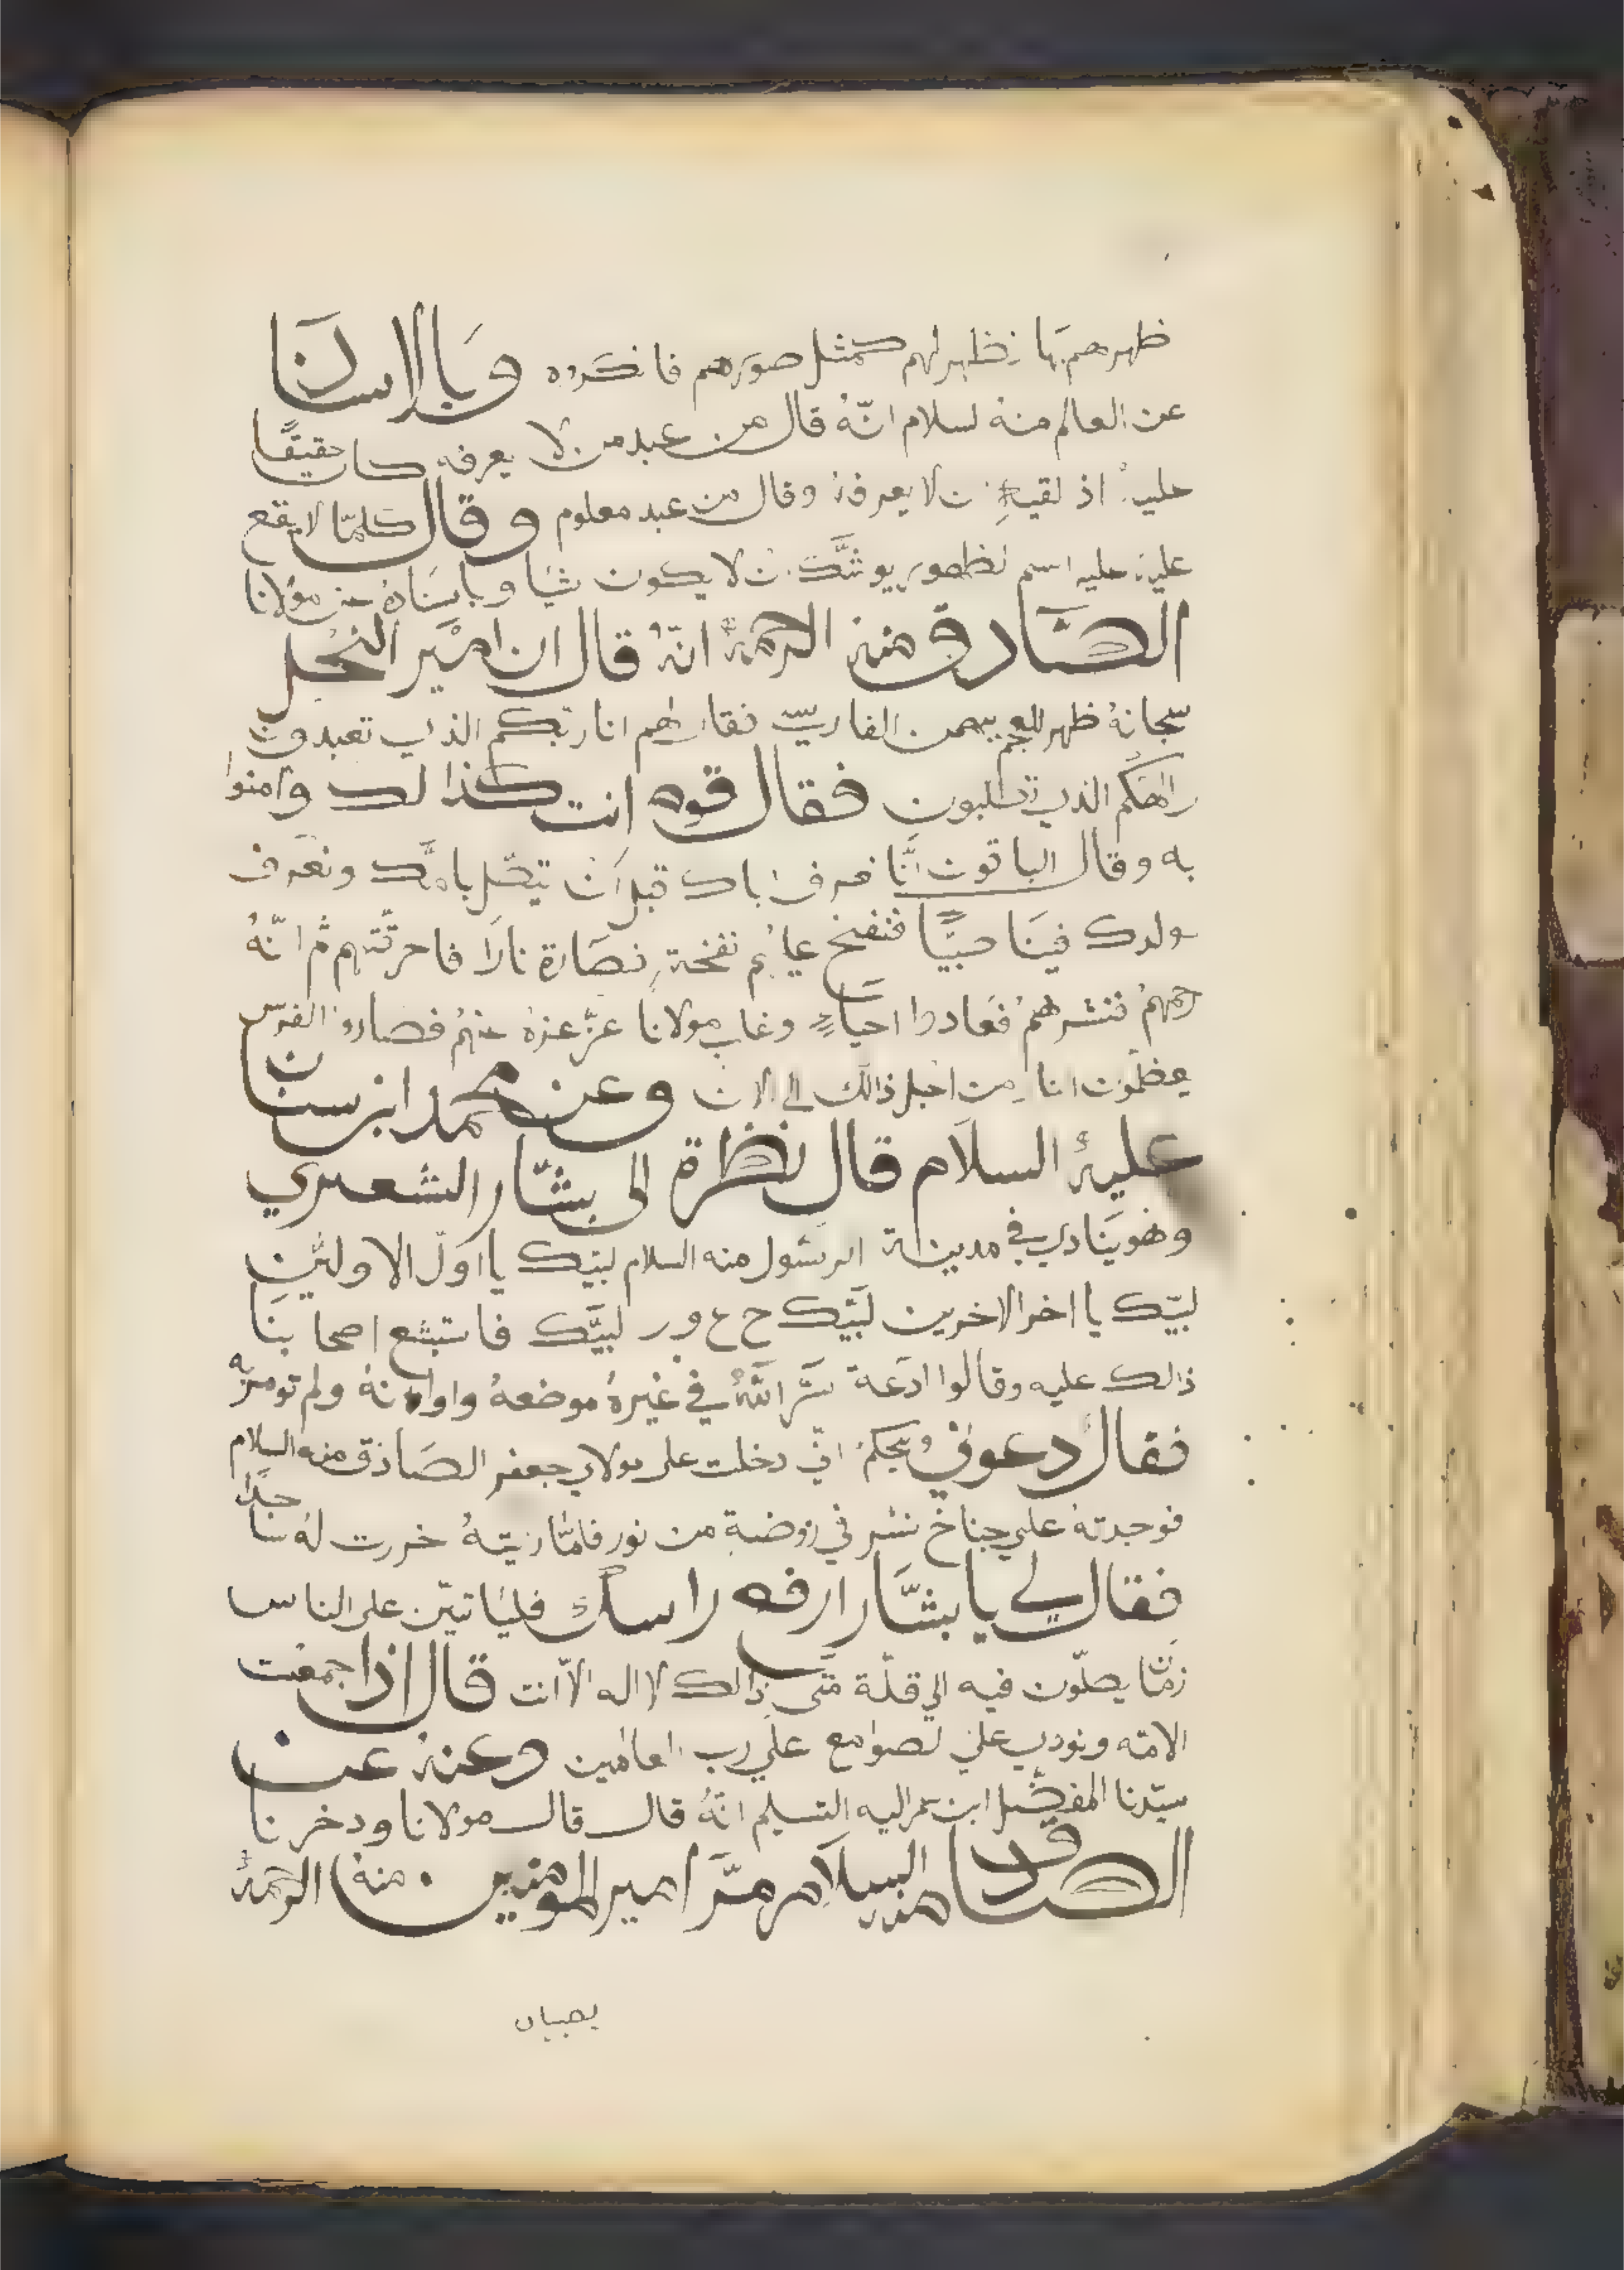 ظهرهم بها فظهر لهم كمثل صورهم فانكروه وبالاسناد
عن العالم منه السلام انّهُ قال من عبد من لا يعرفه كان حقيقًا
عليه اذ لقيه ان لا يعرفه وقال من عبد معلوم وقال كلمّا لا يقع
عليه اسم يوشّك ان لا يكون شيًا وباسنَادهُ عن مولانا
الصَّادق منهُ الرحمةُ انّهُ قال ان اميْر النحْل
سبحانهُ ظهر للعجم بهمن الفارسيّ فقال لهم انا ربّكم الذي تعبدون
والهكم الذي تطلبون فقال قوم انت كذالك وآمنوا
به وقال الباقون انَّا نعرف اباك قبل ان بامّك ونعرف
مولدك فينَا صبيًّا فنفخ عليهم نفخةٍ فصَارة نارًا فاحرقتهم ثم انّهُ
رحمهمُ فنشرهمُ فعَادوا احياءٍ وغاب مولانا عزّ عزهُ عنهمُ فصاروا الفرس
يعظّمون النار من اجل ذالك الى الان وعن محمد ابن سنان
عليهُ السلام قال نظرة الى بشّار الشعيري
وهو ينَادي في مدينة الرسُول منه السلام لبّيك يا اوّل الاولّين
لبيّك يا اخر الاخرين لبّيك ح ع و ر لبيَّك فاستبشع اصحابنَا
ذالك عليه وقالوا ادَعة سَّر اللّهُ في غيرهُ موضعهُ واوانهُ ولم تومر به
فقال دعوني ويحكمُ انّي دخلت على مولاي جعفر الصَادق منه السلام
فوجدتهُ على جناح نسر في روضة من نور فلمّا رئيتهُ خررت لهُ ساجدًا
فقال لي يا بشَّار ارفع راسك فليَاتينّ على الناس
زمانًا يصلّون فيه الى قبلة متَى ذالك لا اله الّا انت قال اذا جمعت
الامّه ونودي على الصوامع علي رب العالمين وعنهُ عن
سيّدنا المفضّل ابن عمر اليه التسليم انّهُ قال قال مولانا ودخرنا
الصادق منه السلام مرَّ امير المومنين منهُ الرحمةُ